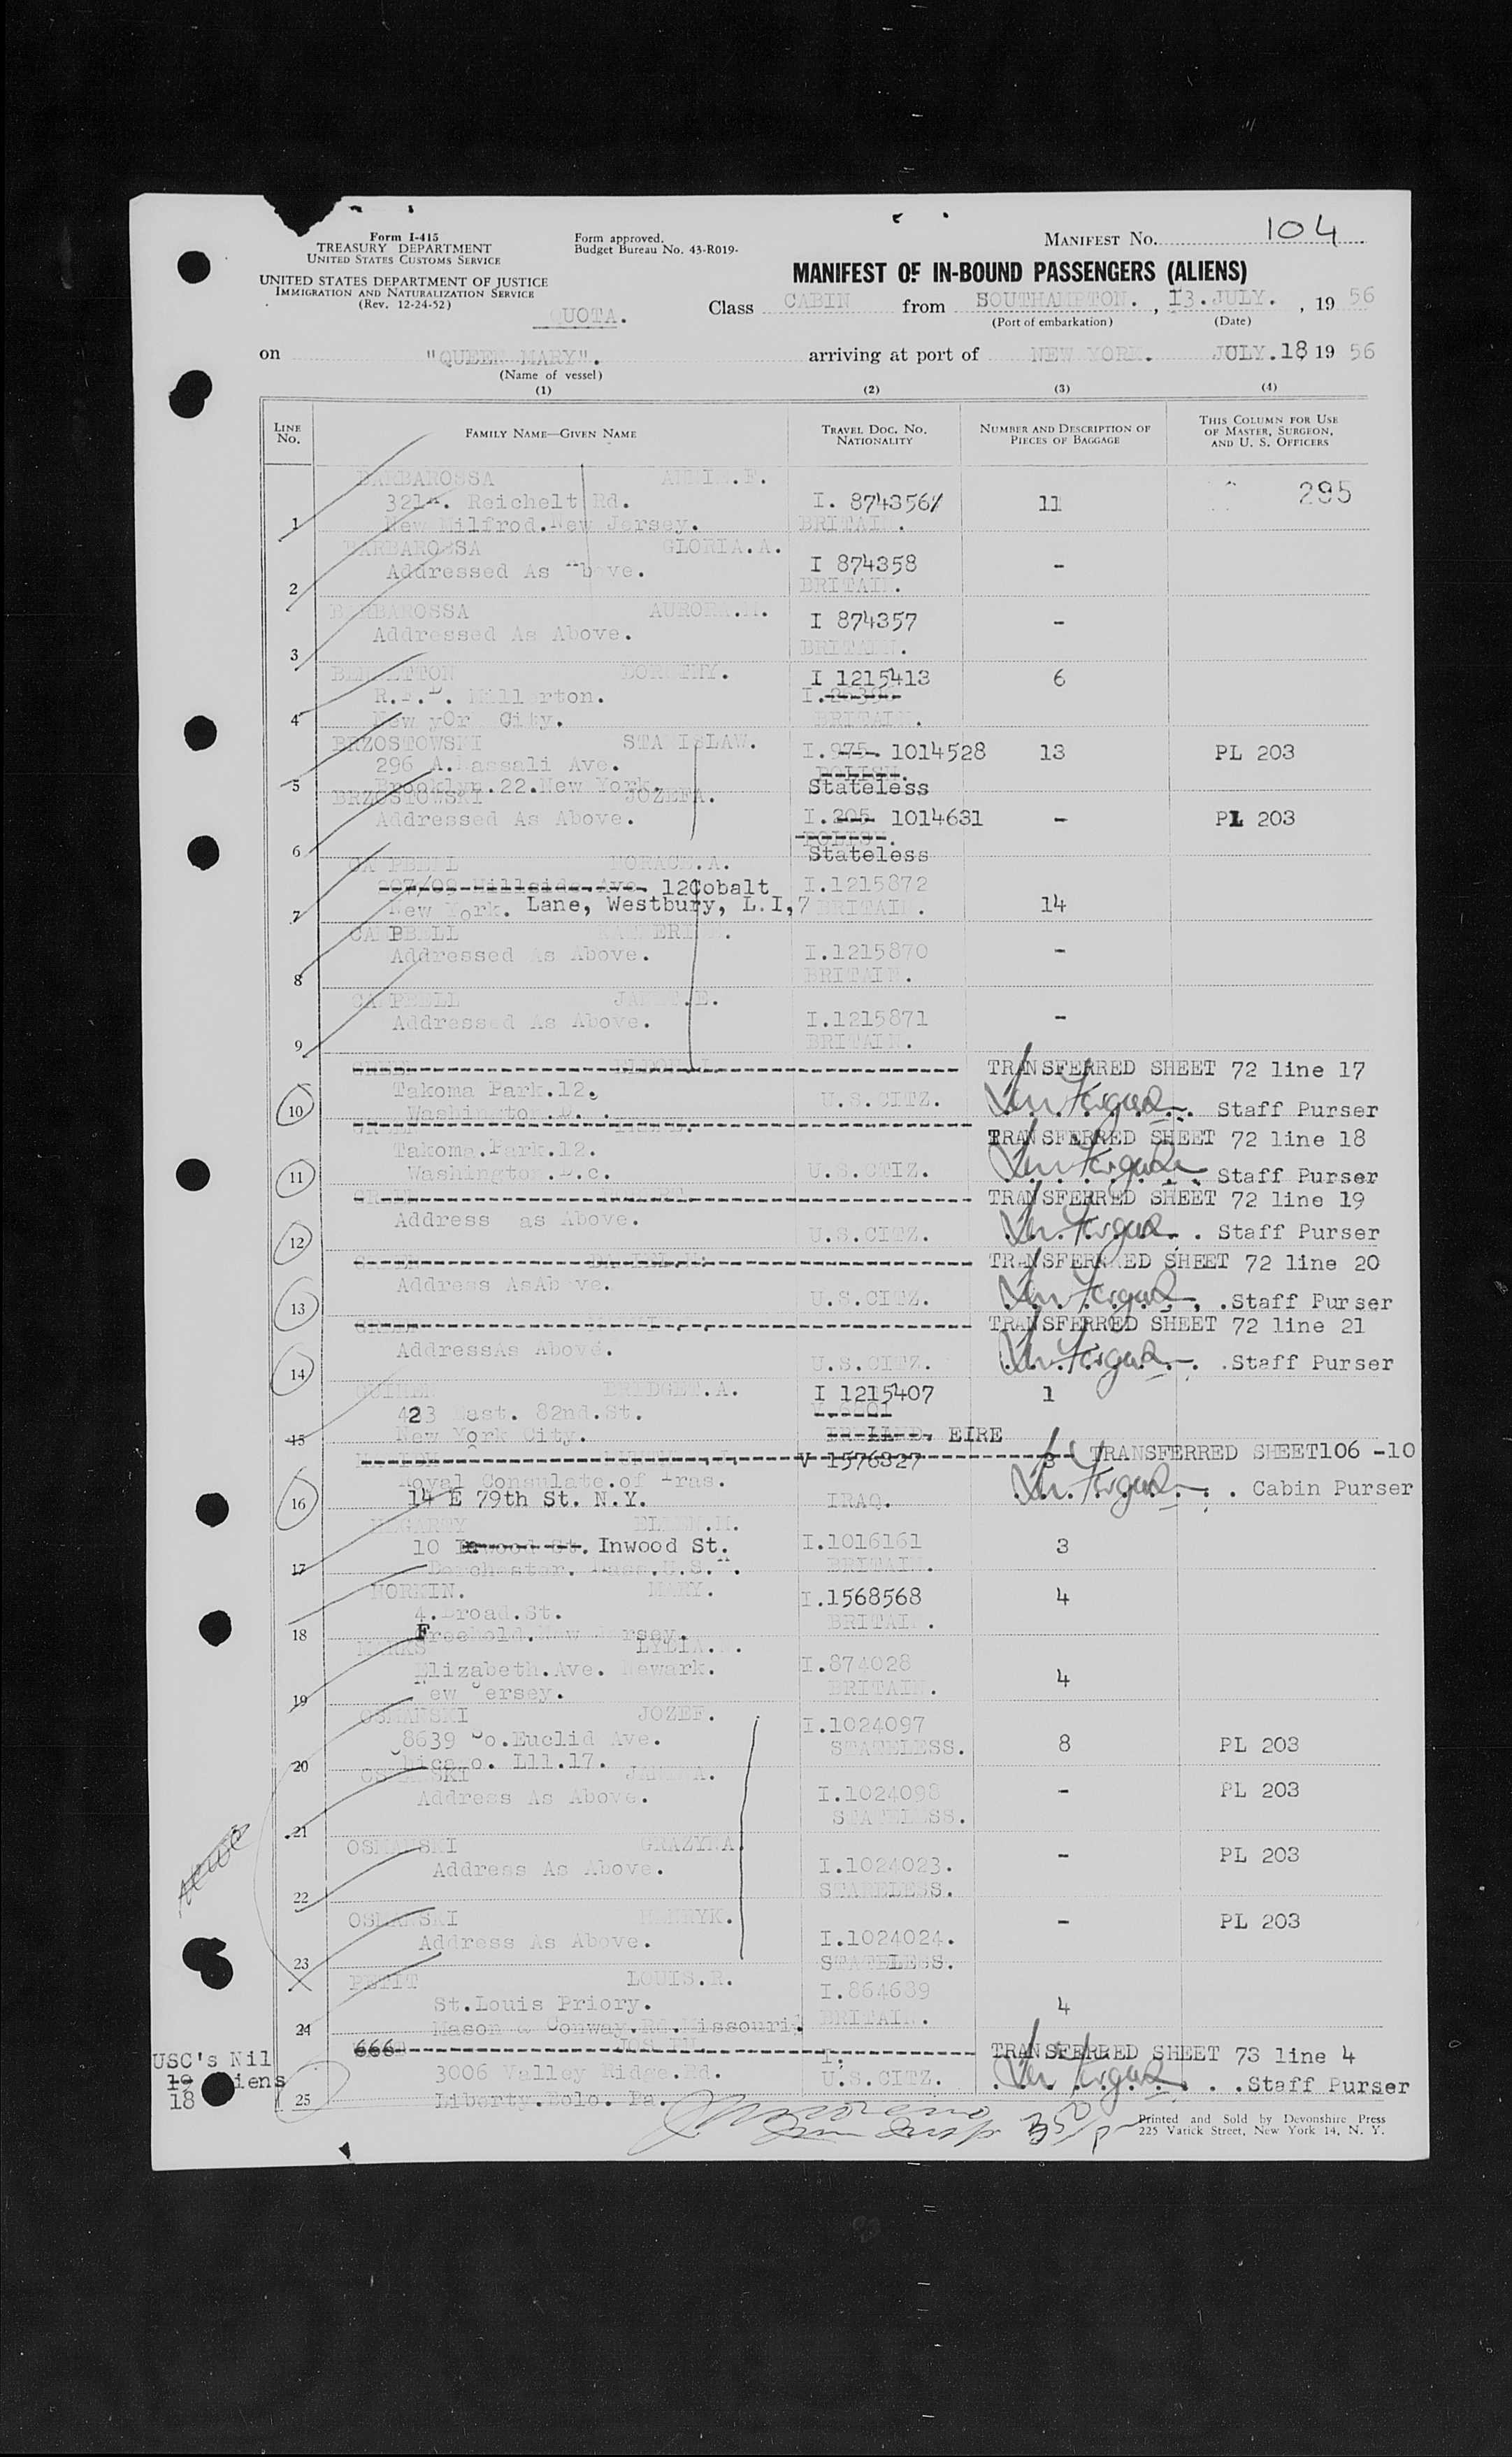 Form I-415
TREASURY DEPARTMENT
UNITED STATES CUSTOMS SERVICE
UNITED STATES DEPARTMENT OF JUSTICE
IMMIGRATION AND NATURALIZATION SERVICE
(Rev. 12-24-52)
Form approved.
Budget Bureau No. 43-R019-
MANIFEST NO. 104
MANIFEST OF IN-BOUND PASSENGERS (ALIENS)
QUOTA.
Class CABIN from SOUTHAMPTON. , 13.JULY. , 19 56
(Port of embarkation) (Date)
on "QUEEN MARY". arriving at port of NEW YORK. JULY.18 19 56
(Name of vessel)
(1) (2) (3) (4)
LINE NO.
FAMILY NAME—GIVEN NAME
TRAVEL DOC. NO. NATIONALITY
NUMBER AND DESCRIPTION OF PIECES OF BAGGAGE
THIS COLUMN FOR USE OF MASTER, SURGEON, AND U. S. OFFICERS
BARBAROSSA
321 . Reichelt Rd. I. 874356 11 295
1 New Milfrod.New Jersey. BRITAIN.
BARBAROSSA GLORIA.A.
Addressed As Above. I 874358 -
2 BRITAIN.
BARBAROSSA AURORA.M.
Addressed As Above. I 874357 -
3 BRITAIN.
DOROTHY. I 1215413 6
R.F.D. Millerton.
4 New yOrk City. BRITAIN.
BRZOSTOWSKI STANISLAW. I. 975 1014528 13 PL 203
296 A.Bassali Ave. POLISH.
5 Brooklyn.22.New York. Stateless
BRZOSTOWSKI JOZEFA.
Addressed As Above. I.205 1014631 - PL 203
POLISH.
6 Stateless
CAMPBELL HORACE.A.
207/09 Hillside Ave. 12Cobalt I.1215872
7 New York. Lane, Westbury, L.I, BRITAIN. 14
CAMPBELL
Addressed As Above. I.1215870 -
8 BRITAIN.
CAMPBELL JANET.E.
Addressed As Above. I.1215871 -
9 BRITAIN.
GREEN TRANSFERRED SHEET 72 line 17
Takoma Park.12. U.S.CITZ.
10 Washington.D. . Staff Purser
GREEN TRANSFERRED SHEET 72 line 18
Takoma.Park.12.
11 Washington.D.c. U.S.CTIZ. Staff Purser
GREEN TRANSFERRED SHEET 72 line 19
Address as Above.
12 U.S.CITZ. Staff Purser
GREEN TRANSFERRAED SHEET 72 line 20
Address AsAbove.
13 U.S.CITZ. .Staff Purser
GREEN TRANSFERRED SHEET 72 line 21
AddressAs Above.
14 U.S.CITZ. .Staff Purser
BRIDGET.A. I 1215407 1
423 East. 82nd.St.
15 New York City. IRELAND. EIRE
V 1576327 3 TRANSFERRED SHEET106 -10
Royal Consulate.of Iras.
16 14 E 79th St. N.Y. IRAQ. Cabin Purser
HEGARTY ELLEN.M.
10 Inwood St. Inwood St. I.1016161 3
17 Dorchester. Mass.U.S.A. BRITAIN.
HORKIN. MARY. I.1568568 4
4.Broad.St. BRITAIN.
18 Freehold.New Jersey.
MARKS
Elizabeth.Ave. Newark. I.874028 4
19 New Jersey. BRITAIN.
OSMANSKI JOZEF. I.1024097
8639 So.Euclid Ave. STATELESS. 8 PL 203
20 Chicago. Lll.17.
OSMANSKI JANINA.
Address As Above. I.1024098 - PL 203
21 STATELESS.
OSMANSKI GRAZYNA.
Address As Above. I.1024023. - PL 203
22 STATELESS.
OSMANSKI HENRYK.
Address As Above. I.1024024. - PL 203
23 STATELESS.
PETIT LOUIS.R. I.864639
St.Louis Priory. 4
24 Mason & Conway.Rd.Missouri. BRITAIN.
666 I. TRANSFERRED SHEET 73 line 4
3006 Valley Ridge.Rd. U.S.CITZ. .Staff Purser
25 Liberty.Bolo. Pa.
USC's Nil
19 Aliens
18
Printed and Sold by Devonshire Press
225 Varick Street, New York 14, N. Y.